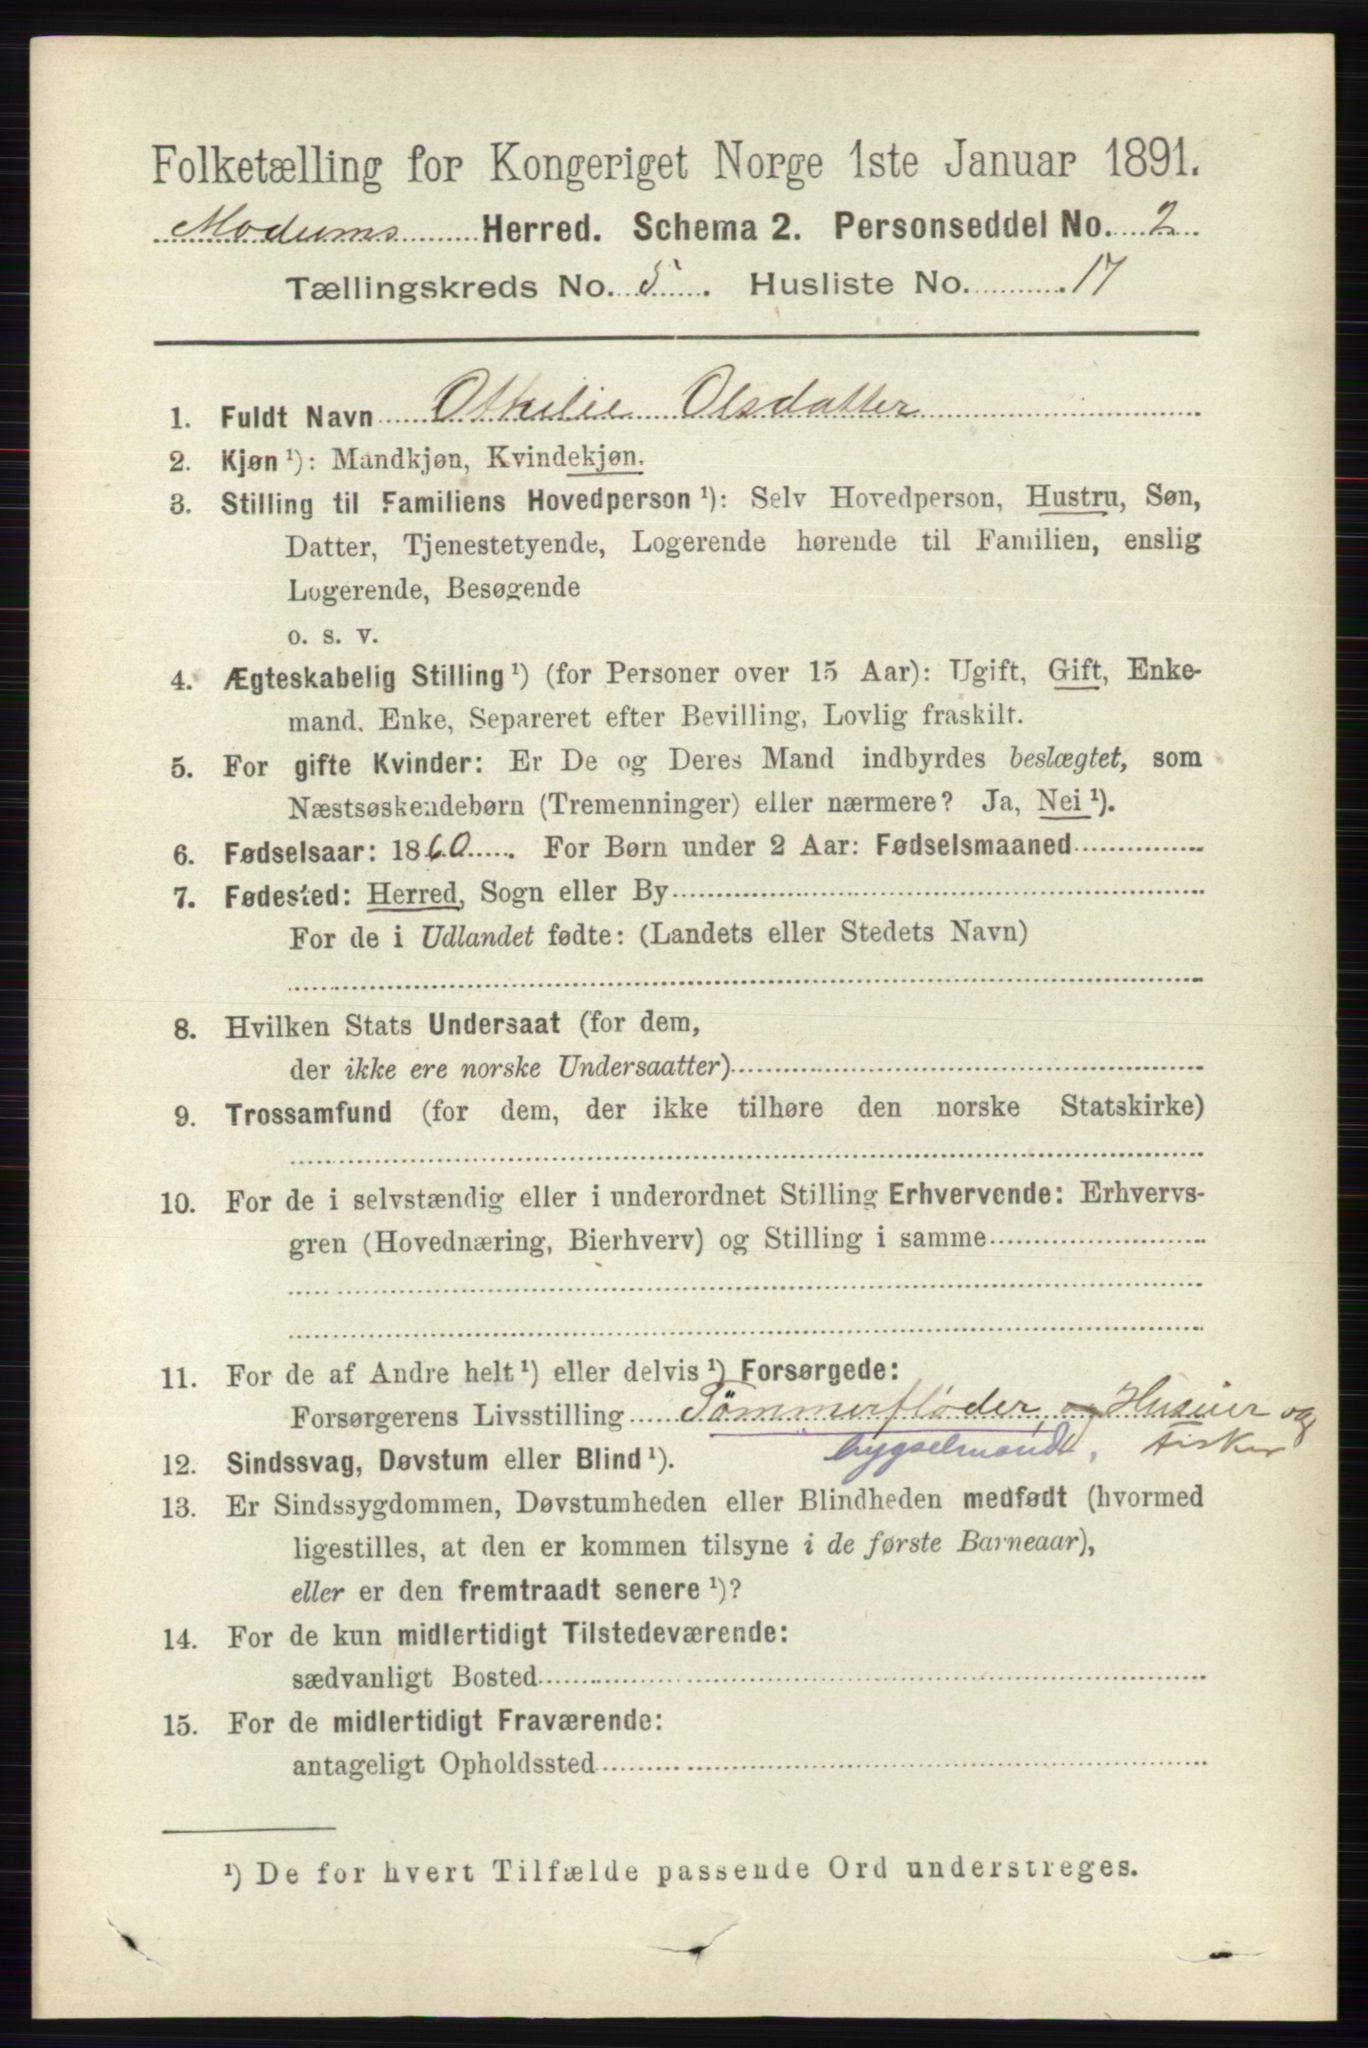 Folketælling for Kongeriget Norge 1ste Januar 1891.
Modums Herred. Schema 2. Personseddel No. 2
Tællingskreds No. 5. Husliste No. 17
1. Fuldt Navn Othilie Olsdatter
2. Kjøn ¹): Mandkjøn, Kvindekjøn.
3. Stilling til Familiens Hovedperson ¹): Selv Hovedperson, Hustru, Søn,
Datter, Tjenestetyende, Logerende hørende til Familien, enslig
Logerende, Besøgende
o. s. v.
4. Ægteskabelig Stilling ¹) (for Personer over 15 Aar): Ugift, Gift, Enke-
mand, Enke, Separeret efter Bevilling, Lovlig fraskilt.
5. For gifte Kvinder: Er De og Deres Mand indbyrdes beslægtet, som
Næstsøskendebørn (Tremenninger) eller nærmere? Ja, Nei ¹).
6. Fødselsaar: 1860. For Børn under 2 Aar: Fødselsmaaned
7. Fødested: Herred, Sogn eller By
For de i Udlandet fødte: (Landets eller Stedets Navn)
8. Hvilken Stats Undersaat (for dem,
der ikke ere norske Undersaatter)
9. Trossamfund (for dem, der ikke tilhøre den norske Statskirke)
10. For de i selvstændig eller i underordnet Stilling Erhvervende: Erhvervs-
gren (Hovednæring, Bierhverv) og Stilling i samme
11. For de af Andre helt ¹) eller delvis ¹) Forsørgede:
Forsørgerens Livsstilling Tömmerfløder og Huseier og
bygselmand, Fisker
12. Sindssvag, Døvstum eller Blind ¹).
13. Er Sindssygdommen, Døvstumheden eller Blindheden medfødt (hvormed
ligestilles, at den er kommen tilsyne i de første Barneaar),
eller er den fremtraadt senere ¹)?
14. For de kun midlertidigt Tilstedeværende:
sædvanligt Bosted
15. For de midlertidigt Fraværende:
antageligt Opholdssted
¹) De for hvert Tilfælde passende Ord understreges.